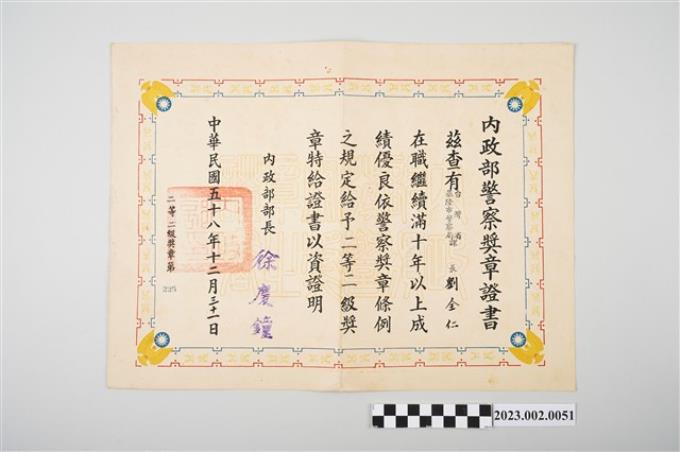 內政部警察獎章證書
茲查有台灣省基隆市警察局課長劉全仁
在職繼續滿十年以上成
績優良依警察獎章條例
之規定給予二等二級獎
章特給證書以資證明
內政部部長 徐慶鐘
中華民國五十八年十二月三十一日
二等二級獎章第 225
2023.002.0051